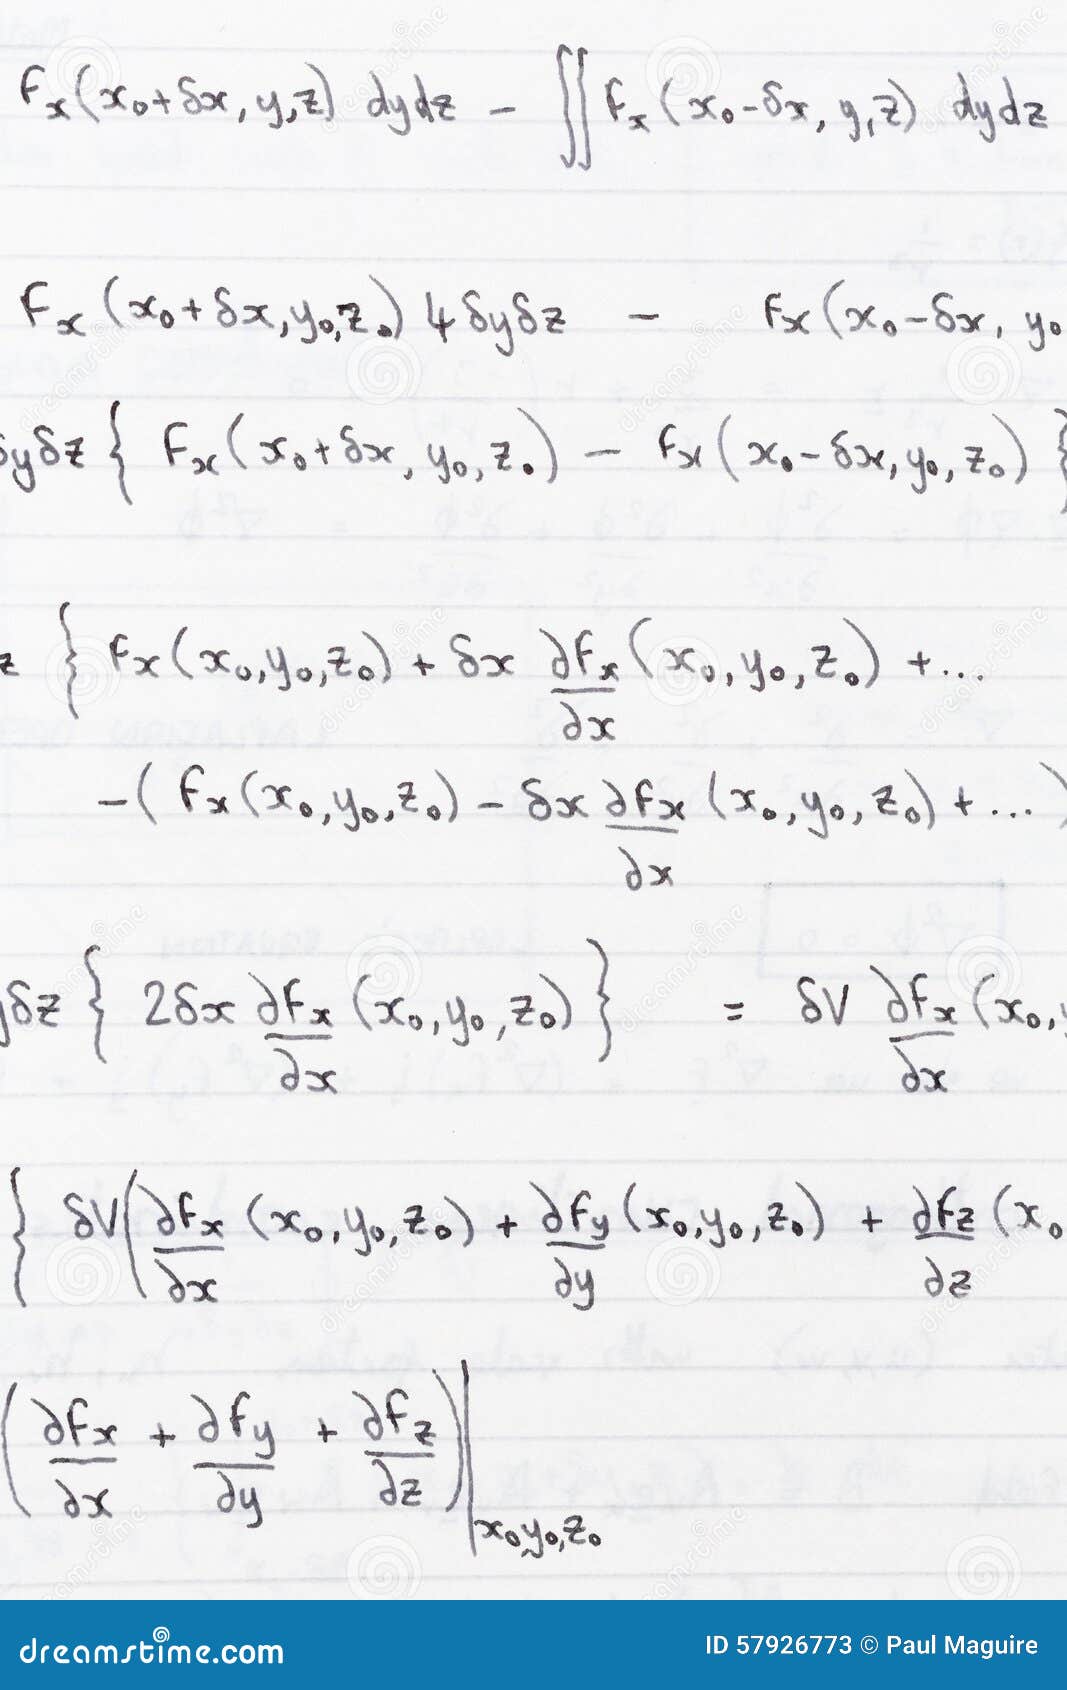 Fx(x₀+δx, y,z) dydz − ∬ Fx(x₀−δx, y,z) dydz
Fx(x₀+δx,y₀,z₀) 4δyδz − Fx(x₀−δx, y₀
δyδz { Fx(x₀+δx, y₀,z₀) − Fx(x₀−δx,y₀,z₀) }
z { Fx(x₀,y₀,z₀) + δx ∂Fx/∂x (x₀,y₀,z₀) + ...
−( Fx(x₀,y₀,z₀) − δx ∂Fx/∂x (x₀,y₀,z₀) + ... )
yδz { 2δx ∂Fx/∂x (x₀,y₀,z₀) } = δV ∂Fx/∂x (x₀,y
{ δV( ∂Fx/∂x (x₀,y₀,z₀) + ∂Fy/∂y (x₀,y₀,z₀) + ∂Fz/∂z (x₀
( ∂Fx/∂x + ∂Fy/∂y + ∂Fz/∂z )|x₀,y₀,z₀
dreamstime.com ID 57926773 © Paul Maguire